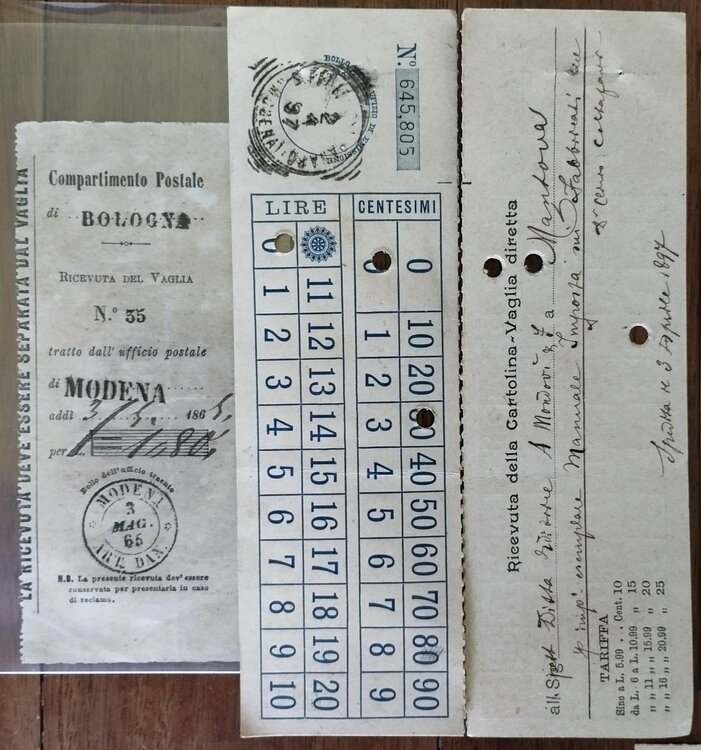 LA RICEVUTA DEVE ESSERE SEPARATA DAL VAGLIA
Compartimento Postale
di BOLOGNA
RICEVUTA DEL VAGLIA
N.° 35
tratto dall' ufficio postale
di MODENA
addì 3/5. 1865.
per L 1,80
Bollo dell'ufficio traente
MODENA
3
MAG.
65
N.B. La presente ricevuta dev' essere
conservata per presentarla in caso
di reclamo.
N.° 645,805
BOLLO UFIZIO DI EMISSIONE
24
97
LIRE CENTESIMI
0 0 0
1 11 1 10
2 12 2 20
3 13 3 30
4 14 4 40
5 15 5 50
6 16 6 60
7 17 7 70
8 18 8 80
9 19 9 90
10 20
Ricevuta della Cartolina-Vaglia diretta
all Spett Ditta A Mondovì a Mantova
esemplare Manuale Imposta sui Fabbricati
Spedita il 3 Aprile 1897
TARIFFA
Sino a L. 5.99 , , Cent. 10
da L. 6 a L. 10.99 " 15
" " 11 " " 15.99 " 20
" " 16 " " 20.99 " 25